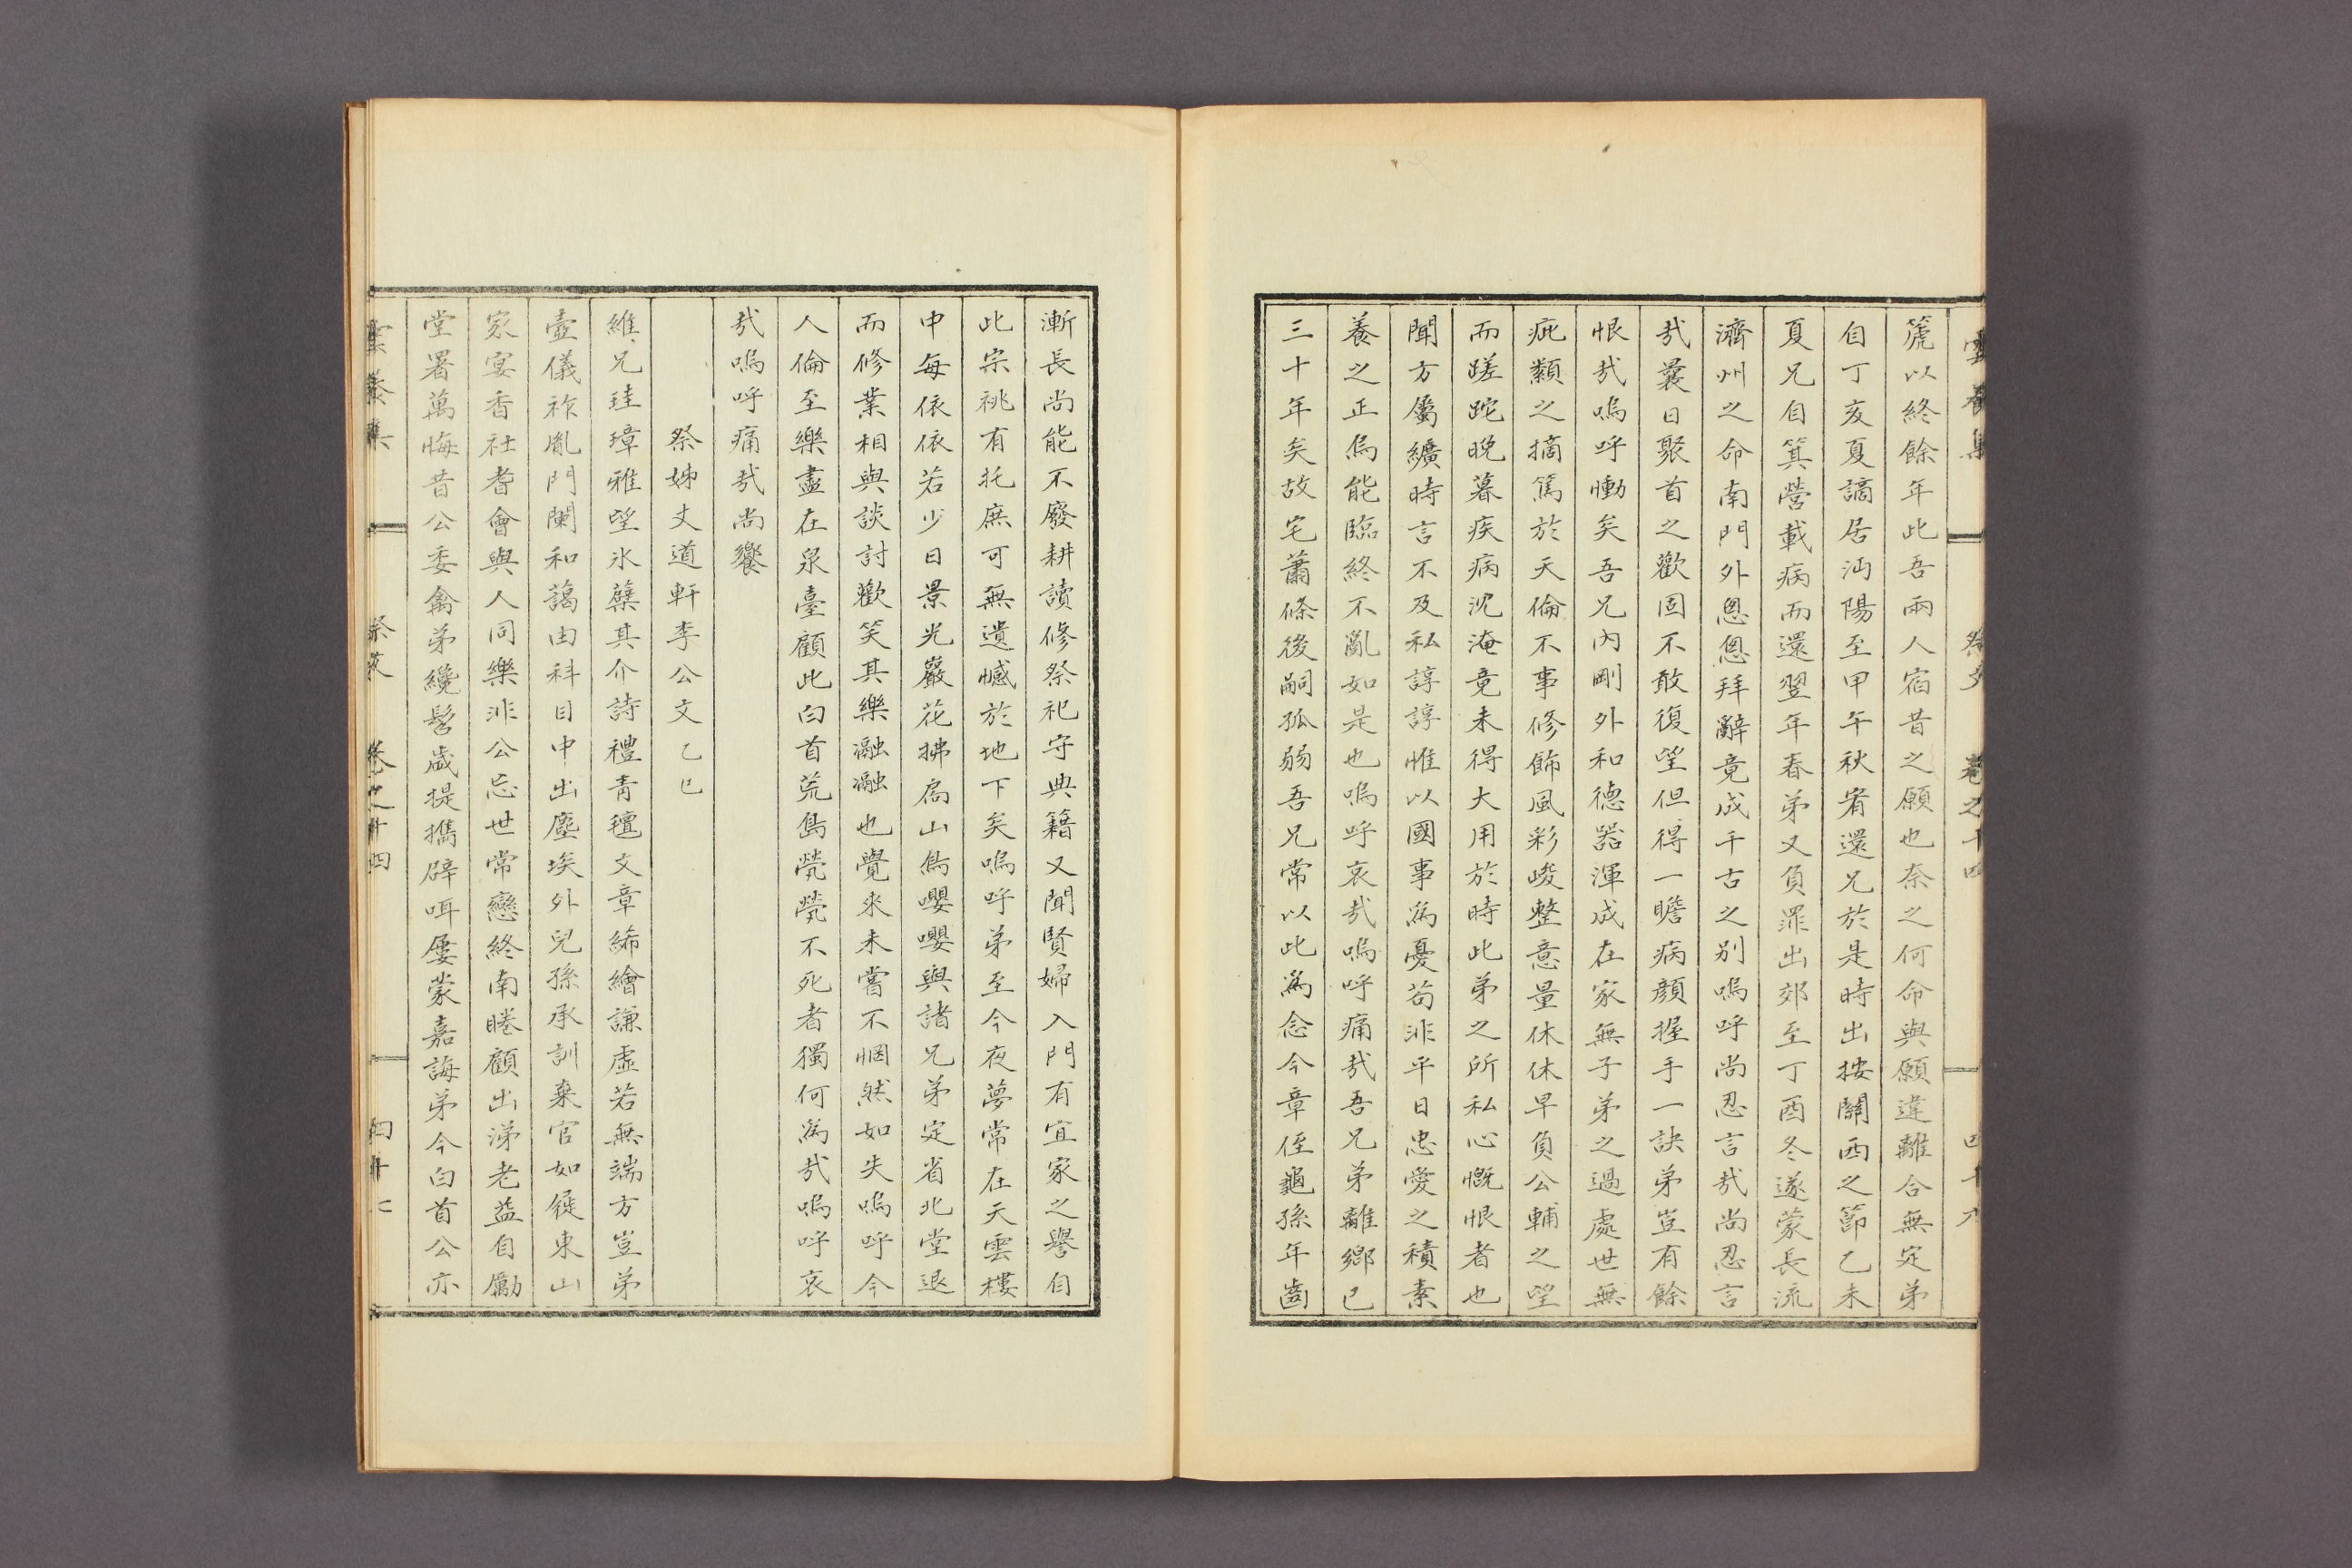 雲養集 祭文 卷之十四 四十六
篪以終餘年此吾兩人宿昔之願也奈之何命與願違離合無定弟
自丁亥夏謫居沔陽至甲午秋宥還兄於是時出按關西之節乙未
夏兄自箕營載病而還翌年春弟又負罪出郊至丁酉冬遂蒙長流
濟州之命南門外恩恩拜辭竟成千古之別嗚呼尚忍言哉尚忍言
哉曩日聚首之歡固不敢復望但得一瞻病顏握手一訣弟豈有餘
恨哉嗚呼慟矣吾兄內剛外和德器渾成在家無子弟之過處世無
疵纇之摘篤於天倫不事修飾風彩峻整意量休休早負公輔之望
而蹉跎晚暮疾病沈淹竟未得大用於時此弟之所私心慨恨者也
聞方屬纊時言不及私諄諄惟以國事為憂苟非平日忠愛之積素
養之正焉能臨終不亂如是也嗚呼哀哉嗚呼痛哉吾兄弟離鄉已
三十年矣故宅蕭條後嗣孤弱吾兄常以此為念今章侄龜孫年齒
漸長尚能不廢耕讀修祭祀守典籍又聞賢婦入門有宜家之譽自
此宗祧有托庶可無遺憾於地下矣嗚呼弟至今夜夢常在天雲樓
中每依依若少日景光巖花拂扃山鳥嚶嚶與諸兄弟定省北堂退
而修業相與談討歡笑其樂瀜瀜也覺來未嘗不惘然如失嗚呼今
人倫至樂盡在泉臺顧此白首荒島煢煢不死者獨何為哉嗚呼哀
哉嗚呼痛哉尚饗
祭姊丈道軒李公文乙巳
維兄珪璋雅望氷蘗其介詩禮青氊文章絺繪謙虛若無端方豈弟
壼儀祚胤門闌和藹由科目中出塵埃外兒孫承訓棄官如屣東山
家宴香社耆會與人同樂非公忘世常戀終南睠顧出涕老益自勵
堂署萬悔昔公委禽弟纔髫歲提攜辟咡屢蒙嘉誨弟今白首公亦
雲養集 祭文 卷之十四 四十七